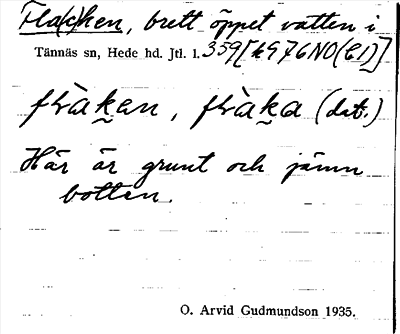 Fla(c)ken, brett öppet vatten i
Tännäs sn, Hede hd. Jtl. l. 359[k976NO(C1)]
fràken, fràka (dat.)
Här är grunt och jämn
botten.
O. Arvid Gudmundson 1935.